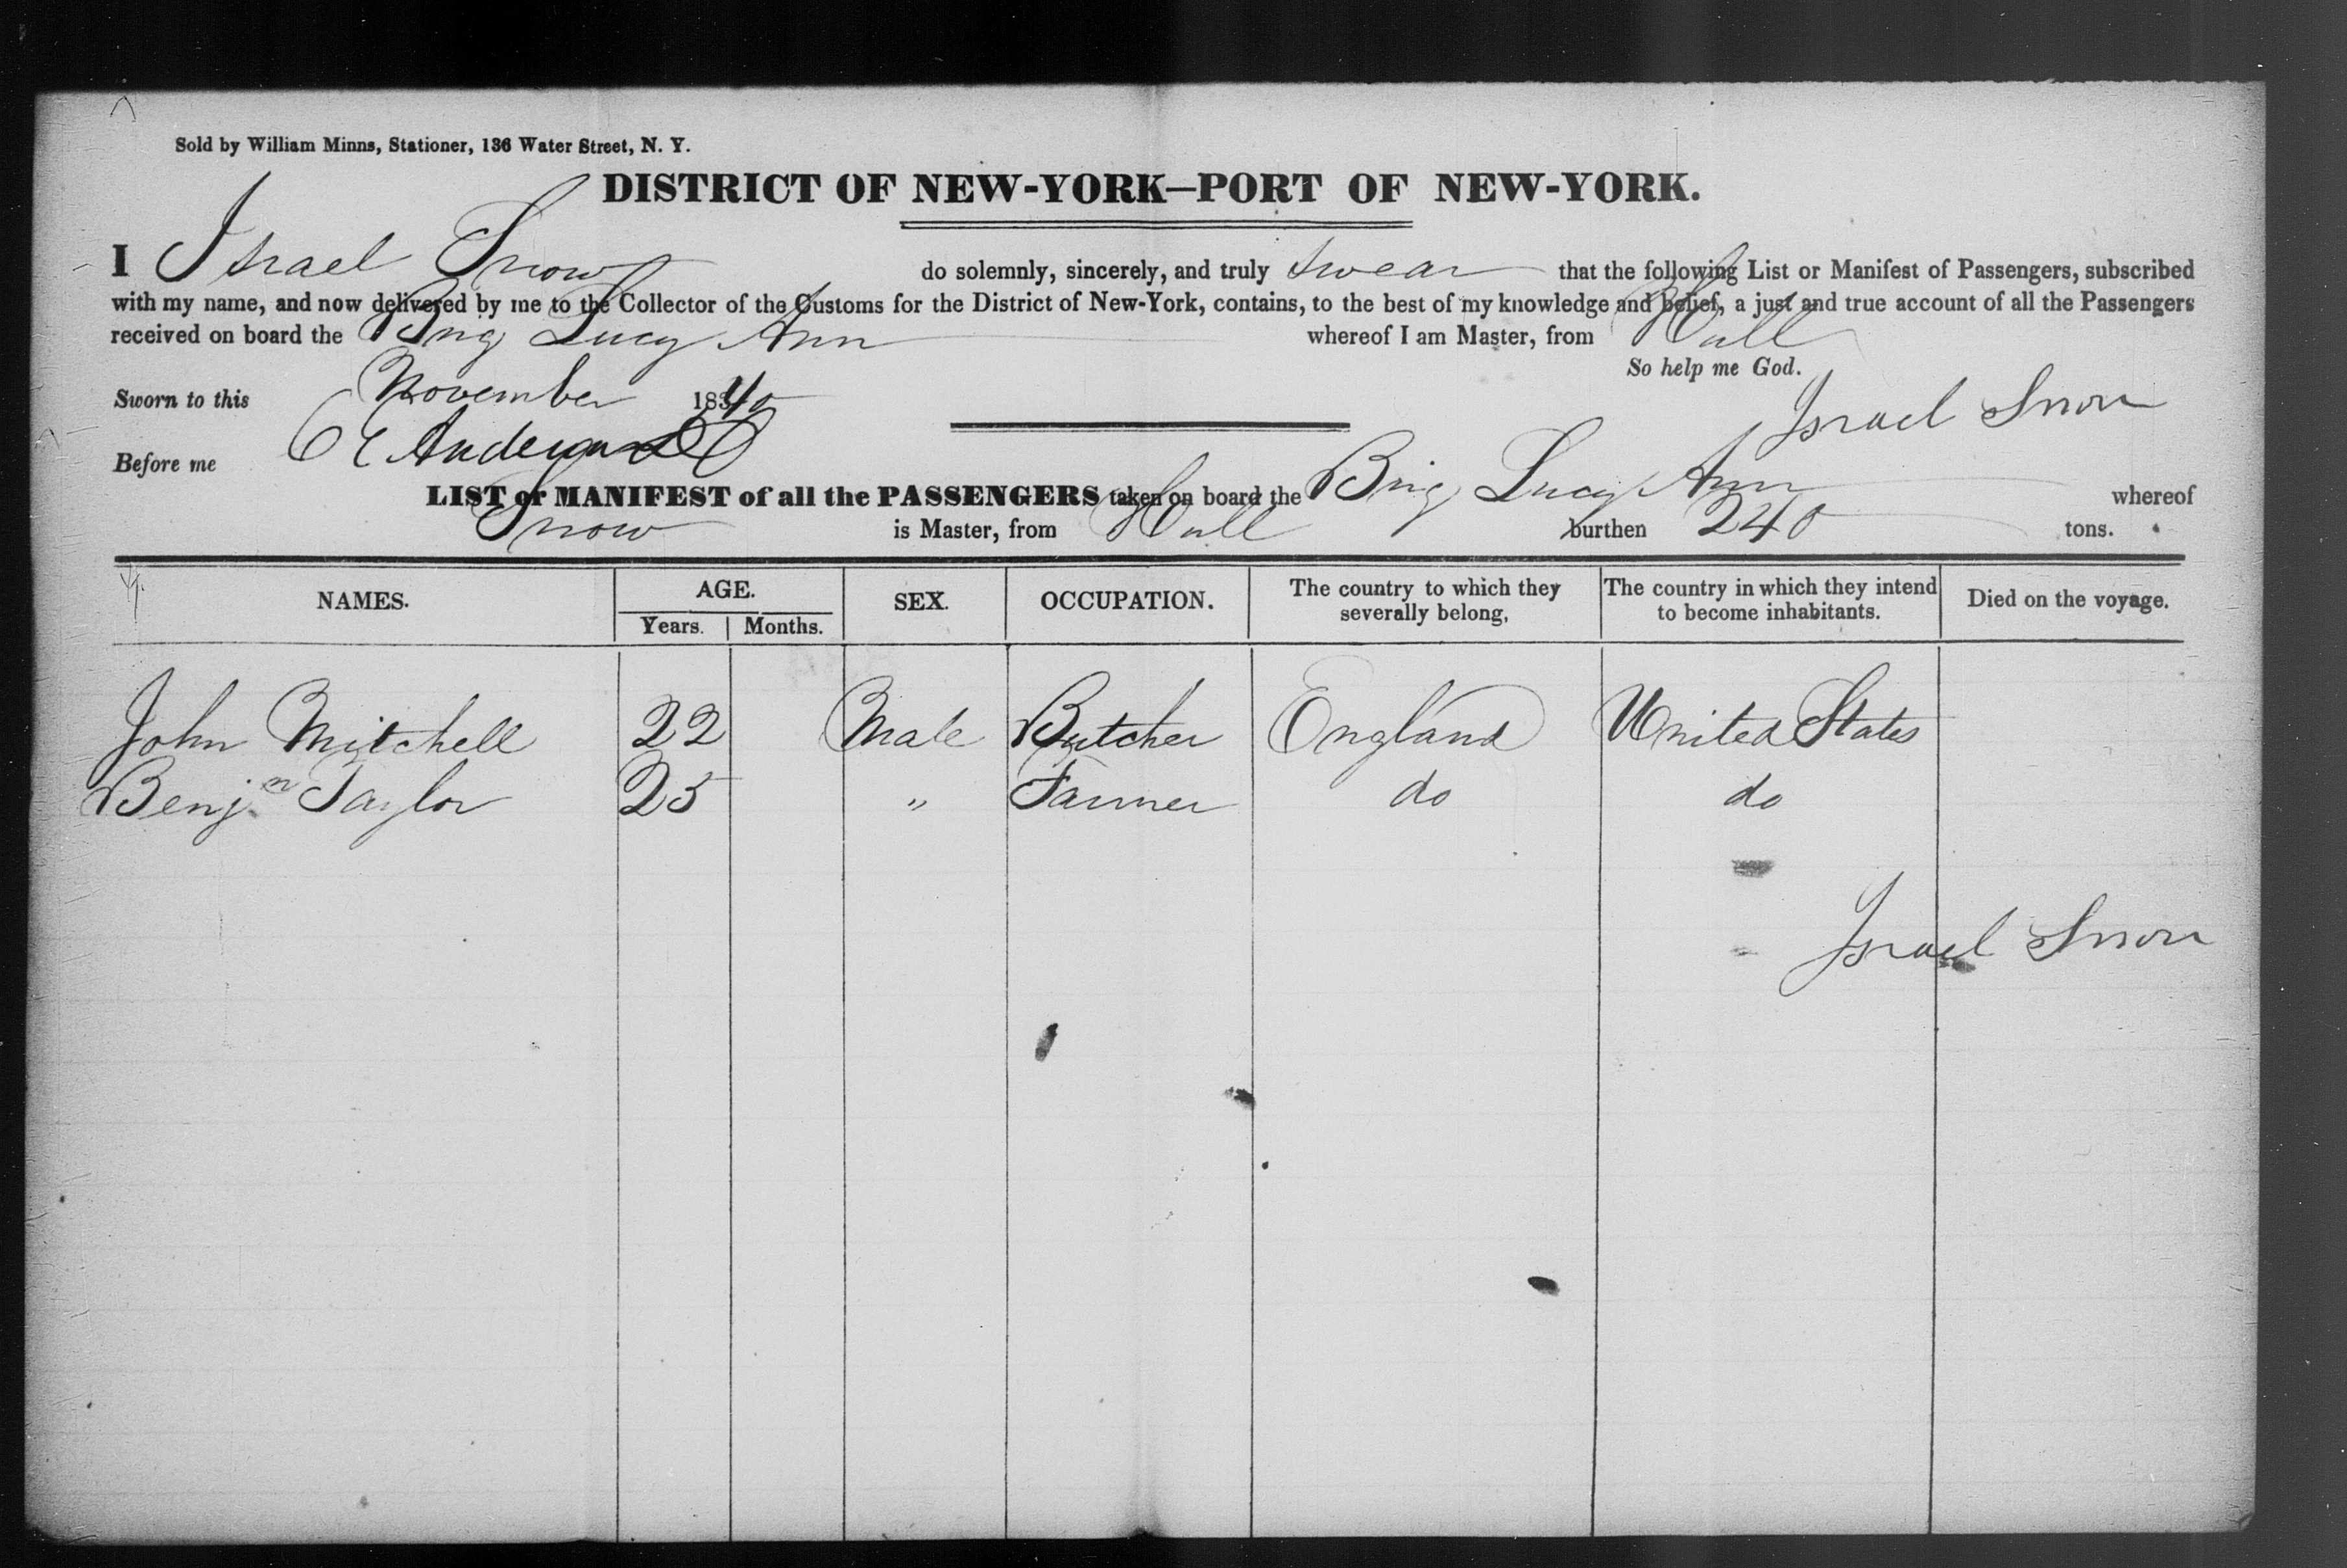 Sold by William Minns, Stationer, 136 Water Street, N. Y.
DISTRICT OF NEW-YORK—PORT OF NEW-YORK.
I Israel Snow do solemnly, sincerely, and truly swear that the following List or Manifest of Passengers, subscribed
with my name, and now delivered by me to the Collector of the Customs for the District of New-York, contains, to the best of my knowledge and belief, a just and true account of all the Passengers
received on board the Brig Lucy Ann whereof I am Master, from Hull
So help me God.
Sworn to this November 1840
Israel Snow
Before me
LIST or MANIFEST of all the PASSENGERS taken on board the Brig Lucy Ann whereof
Snow is Master, from Hull burthen 240 tons.
NAMES. AGE. SEX. OCCUPATION. The country to which they severally belong, The country in which they intend to become inhabitants. Died on the voyage.
Years. Months.
John Mitchell 22 Male Butcher England United States
Benjn Taylor 25 " Farmer do do
Israel Snow